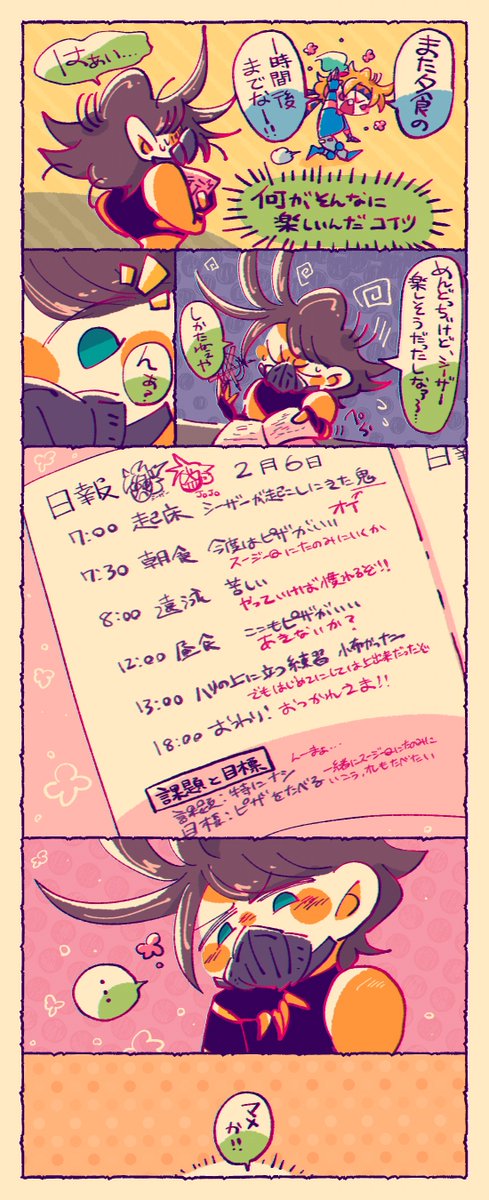 また夕食の
一時間後
までなー!!
はぁい…
何がそんなに
楽しいんだコイツ
めんどっちいけど、シーザー
楽しそうだったしな〜…
しかたねぇや
ぺら
んぁ?
日報
JOJO
2月6日
7:00 起床 シーザーが起こしにきた鬼
オイ
7:30 朝食 今度はピザがいい
スージーQにたのみにいくか
8:00 遠泳 苦しい
やっていければ慣れるぞ!!
12:00 昼食 ここもピザがいい
あきないか?
13:00 ハリの上に立つ練習 小布かった
でもはじめてにしては上出来だったぞ
18:00 おわり! おつかれさま!!
課題と目標
課題:特にナシ
んーまぁ…
目標:ピザをたべる
一緒にスージーQにたのみに
いこう、オレもたべたい
マメ
か!!